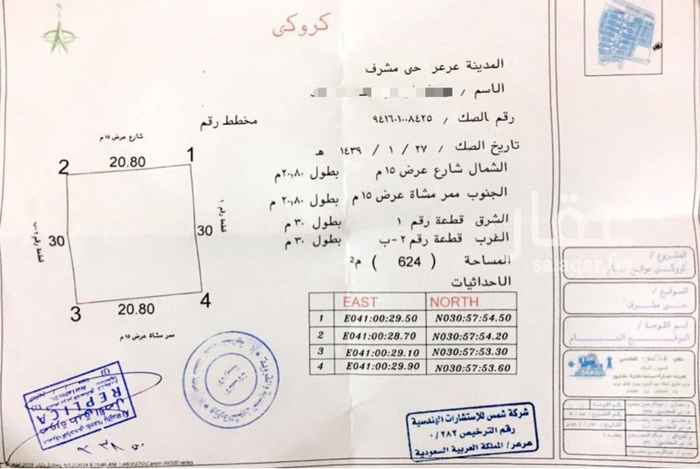 كروكي
المدينة عرعر حى مشرف
الاسم /
رقم الصك / ٩٤١٦٠١٠٠٨٤٢٥
مخطط رقم
تاريخ الصك / ٢٧ / ١ / ١٤٣٩ هـ
الشمال شارع عرض ١٥ م بطول ٢٠،٨٠ م
الجنوب ممر مشاة عرض ١٥ م بطول ٢٠،٨٠ م
الشرق قطعة رقم ١ بطول ٣٠ م
الغرب قطعة رقم ٢-ب بطول ٣٠ م
المساحة ( 624 ) م٢
الاحداثيات
EAST NORTH
1 E041:00:29.50 N030:57:54.50
2 E041:00:28.70 N030:57:54.20
3 E041:00:29.10 N030:57:53.30
4 E041:00:29.90 N030:57:53.60
شارع عرض ١٥ م
2 20.80 1
قطعة رقم ٢-ب
30
30
قطعة رقم ١
3 20.80 4
ممر مشاة عرض ١٥ م
صورة طبق الأصل
REPLICA
شركة شمس للإستشارات الهندسية
رقم الترخيص ٢٨٢ / ٠
عرعر / المملكة العربية السعودية
المشروع /
الموقع /
حى مشرف
اسم اللوحة /
الموقع العام
عقار
sa.aqar.fm